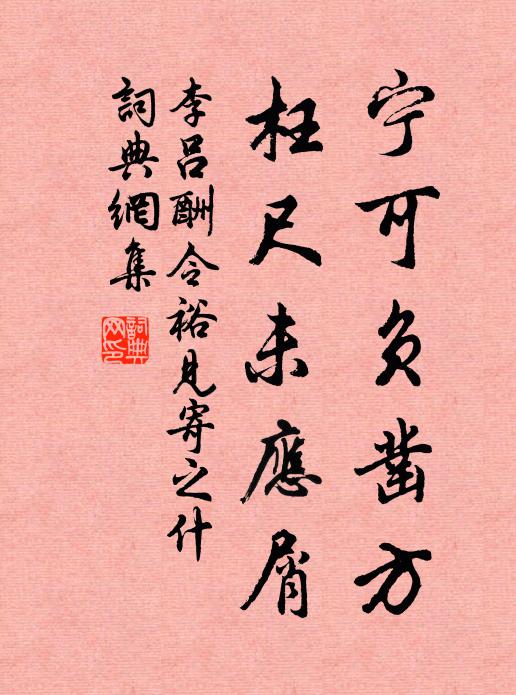 宁可负凿方
枉尺未應屑
李呂酬令裕見寄之什
詞典網集
詞典網印